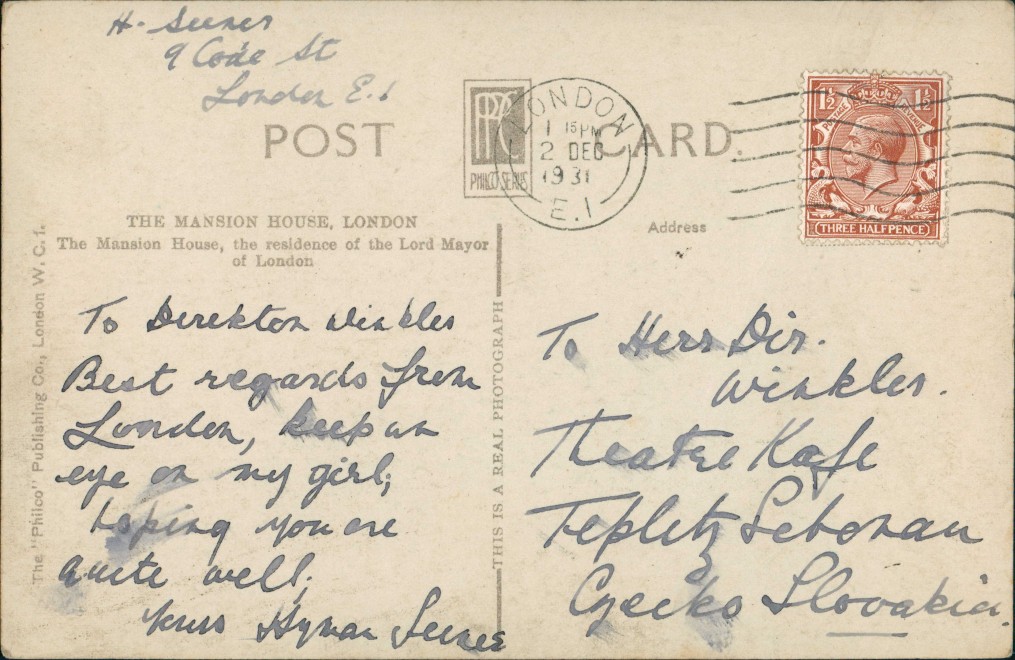 H. Seener
9 Code St
London E.1
POST CARD.
PHILCO SERIES
LONDON
1 15PM
2 DEC
1931
E.1
1½ 1½
POSTAGE REVENUE
THREE HALFPENCE
THE MANSION HOUSE, LONDON
The Mansion House, the residence of the Lord Mayor
of London
Address
The "Philco" Publishing Co., London W.C.1.
THIS IS A REAL PHOTOGRAPH
To Direktor Winkler
Best regards from
London, keep an
eye on my girl,
hoping you are
quite well.
Yours Hyman Seener
To Herr Dir.
Winkler.
Theatre Kafe
Teplitz Schonau
Czecko Slovakia.